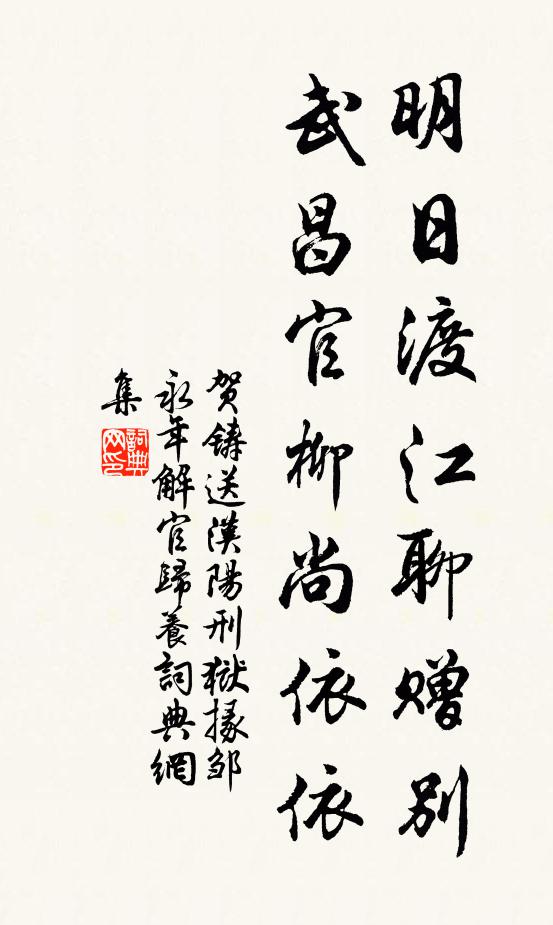 明日渡江聊赠别
武昌官柳尚依依
贺铸送漢陽刑獄掾邹
永年解官歸養詞典網
集
詞典
网印